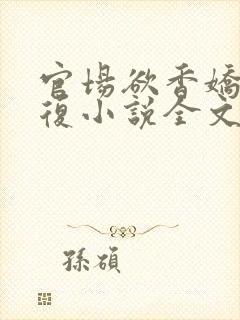 官場欲香嬌
復小說全文
孫碩